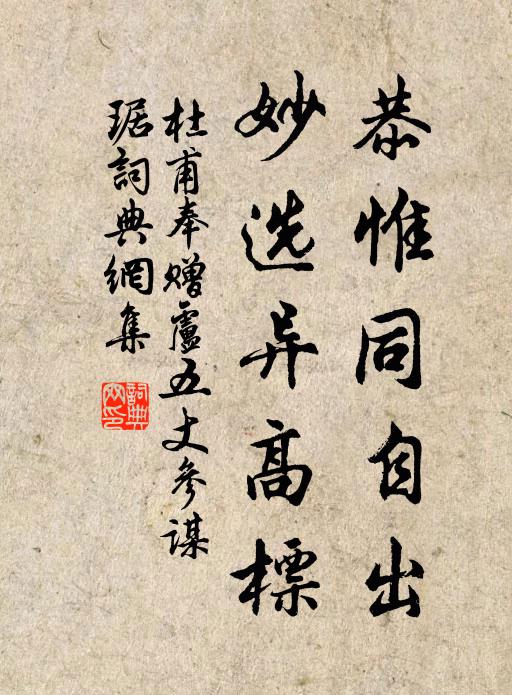 恭惟同自出
妙选异高標
杜甫奉赠盧五丈參謀
琚詞典網集
詞典網印